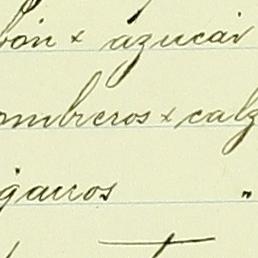 bón & azucar
ombreros & calz
garros "